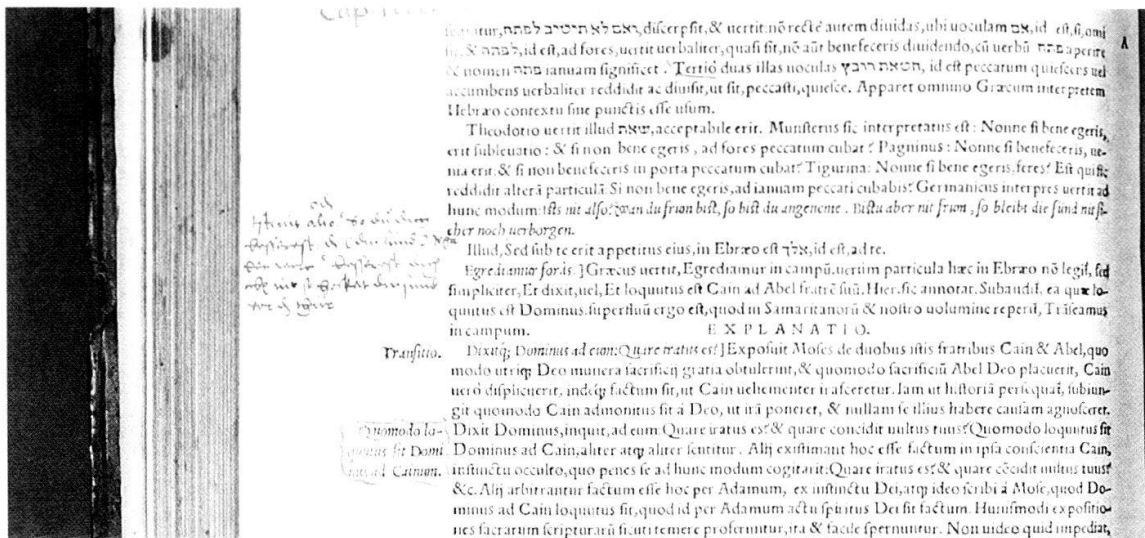 ſequitur, ואם לא תיטיב לפתח, diſcerpſit, & uertit. nō rectè autem diuidas, ubi uoculam אם, id eſt, ſi, omi
ſit. & לפתח, id eſt, ad fores, uertit uerbaliter, quaſi ſit, nō aūt benefeceris diuidendo, cū uerbū פתח aperire
& nomen פתח ianuam ſignificet. Tertiò duas illas uoculas חטאת רובץ, id eſt peccatum quieſcens uel
accumbens uerbaliter reddidit ac diuiſit, ut ſit, peccaſti, quieſce. Apparet omnino Græcum interpretem
Hebræo contextu ſine punctis eſſe uſum.
A
Theodotio uertit illud שאת, acceptabile erit. Munſterus ſic interpretatus eſt: Nonne ſi bene egeris,
erit ſubleuatio: & ſi non bene egeris, ad fores peccatum cubat? Pagninus: Nonne ſi benefeceris, ue-
nia erit. & ſi non benefeceris in porta peccatum cubat? Tigurina: Nonne ſi bene egeris, feres? Eſt qui ſic
reddidit alterā particulā Si non bene egeris, ad ianuam peccati cubabis? Germanicus interpres uertit ad
hunc modum: iſts nit alſo? wan du frum biſt, ſo biſt du angeneme. Biſtu aber nit frum, ſo bleibt die ſund nit ſi-
cher noch uerborgen.
Illud, Sed ſub te erit appetitus eius, in Ebræo eſt אלך, id eſt, ad te.
Egrediamur foràs. ] Græcus uertit, Egrediamur in campū. uerùm particula hæc in Ebræo nō legiſ, ſed
ſimpliciter, Et dixit, uel, Et loquutus eſt Cain ad Abel fratrē ſuū. Hier. ſic annotat. Subaudiſ, ea quæ lo-
quutus eſt Dominus. ſuperfluū ergo eſt, quod in Samaritanorū & noſtro uolumine reperiſ, Trāſeamus
in campum. EXPLANATIO.
Tranſitio.
Dixitq; Dominus ad eum: Quare iratus es? ] Expoſuit Moſes de duobus iſtis fratribus Cain & Abel, quo
modo utriq; Deo munera ſacrificij gratia obtulerint, & quomodo ſacrificiū Abel Deo placuerit, Cain
uerò diſplicuerit, indeq; factum ſit, ut Cain uehementer iraſceretur. Iam ut hiſtoriā perſequaſ, ſubiun-
git quomodo Cain admonitus ſit à Deo, ut irā poneret, & nullam ſe illius habere cauſam agnoſceret.
Quomodo lo-
quutus ſit Domi
nus ad Cainum.
Dixit Dominus, inquit, ad eum: Quare iratus es? & quare concidit uultus tuus? Quomodo loquutus ſit
Dominus ad Cain, aliter atq; aliter ſentitur. Alij exiſtimant hoc eſſe factum in ipſa conſcientia Cain,
inſtinctu occulto, quo penes ſe ad hunc modum cogitarit: Quare iratus es? & quare cōcidit uultus tuus?
&c. Alij arbitrantur factum eſſe hoc per Adamum, ex inſtinctu Dei, atq; ideo ſcribi à Moſe, quod Do-
minus ad Cain loquutus ſit, quod id per Adamum actu ſpiritus Dei ſit factum. Huiuſmodi expoſitio-
nes ſacrarum ſcripturarū ſicuti temere proferuntur, ita & facile ſpernuntur. Non uideo quid impediat,